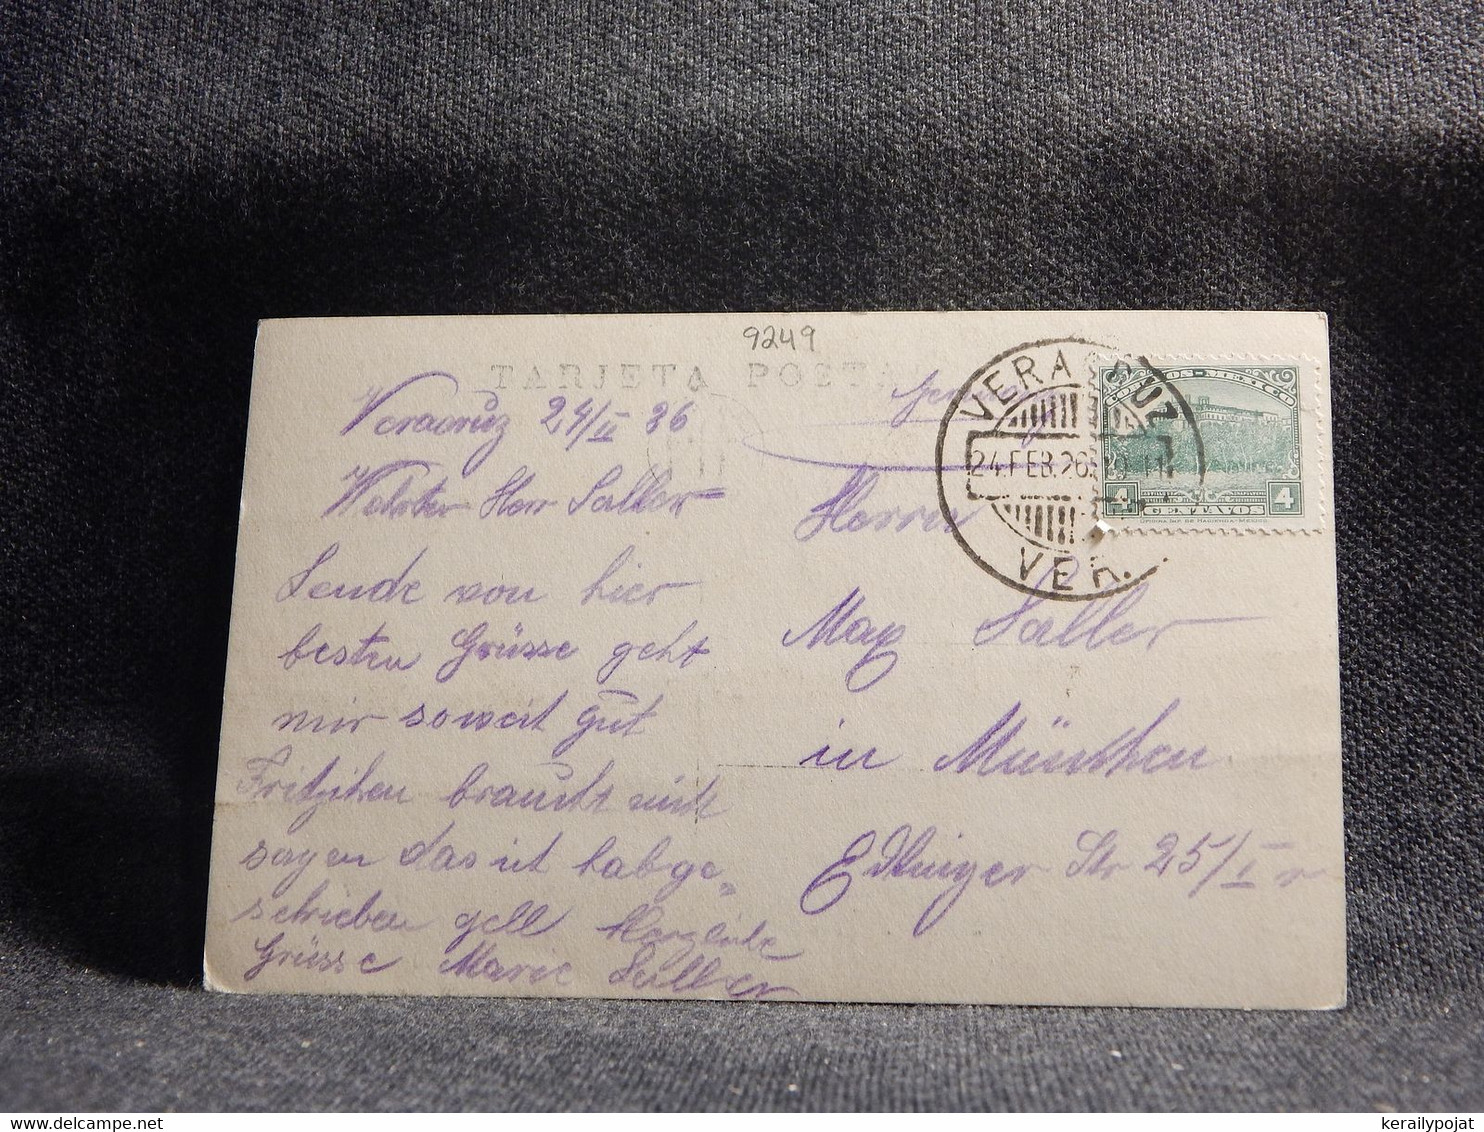 9249
TARJETA POSTAL
Veracruz 24/II 26
Werter Herr Saller
Sende von hier
besten Grüsse geht
mir soweit gut
Fritzchen braucht nicht
sagen das ich habge„
schrieben gell Herzliche
Grüsse Marie Saller
Germany
Herrn
Max Saller
in München
Edlinger Str 25/I r
VERACRUZ
24.FEB.26
VER.
CORREOS-MEXICO
4 CENTAVOS 4
OFICINA IMP. DE HACIENDA-MEXICO
kerailypojat